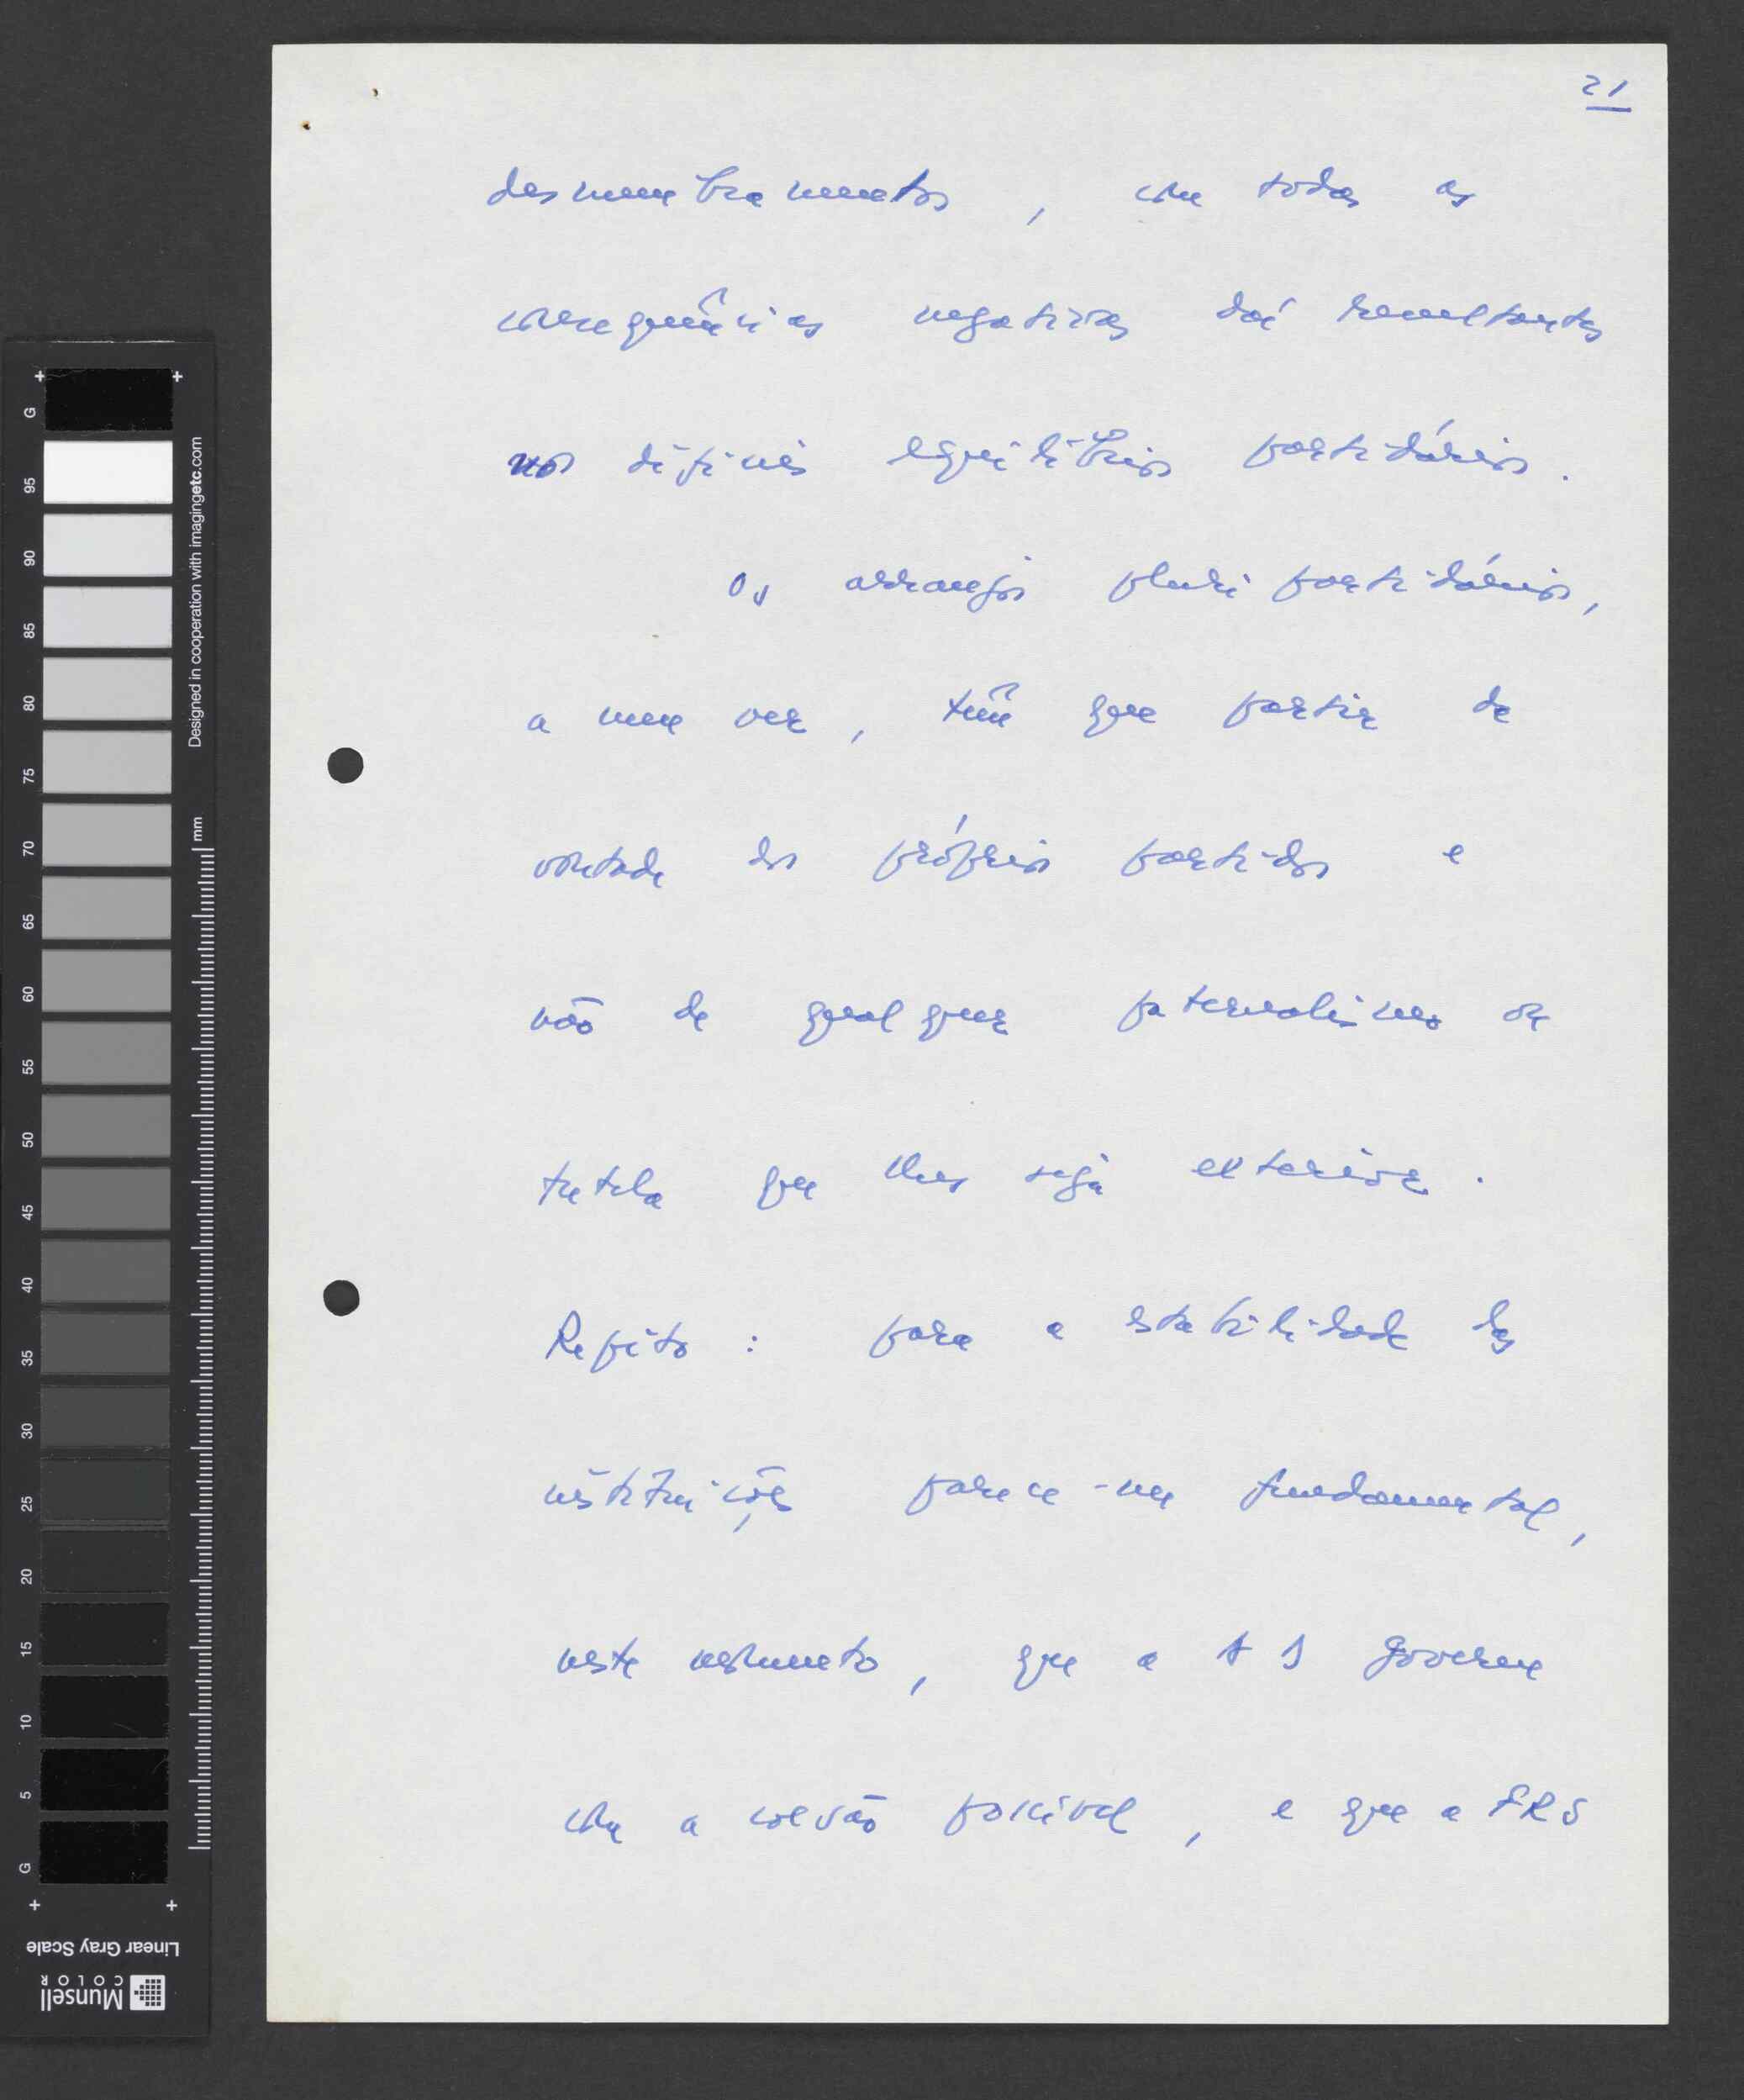 21
desmembramentos, com todas as
consequências negativas daí resultantes
nos difíceis equilíbrios partidários.
Os arranjos pluripartidários,
a meu ver, têm que partir da
vontade dos próprios partidos e
não de qualquer paternalismo ou
tutela que lhes seja exterior.
Repito: para a estabilidade das
instituições parece-me fundamental,
neste momento, que a AD governe
com a coesão possível, e que a FRS
G
95
90
85
80
75
70
65
60
55
50
45
40
35
30
25
20
15
10
5
G
Designed in cooperation with imagingetc.com
mm
Linear Gray Scale
Munsell
COLOR